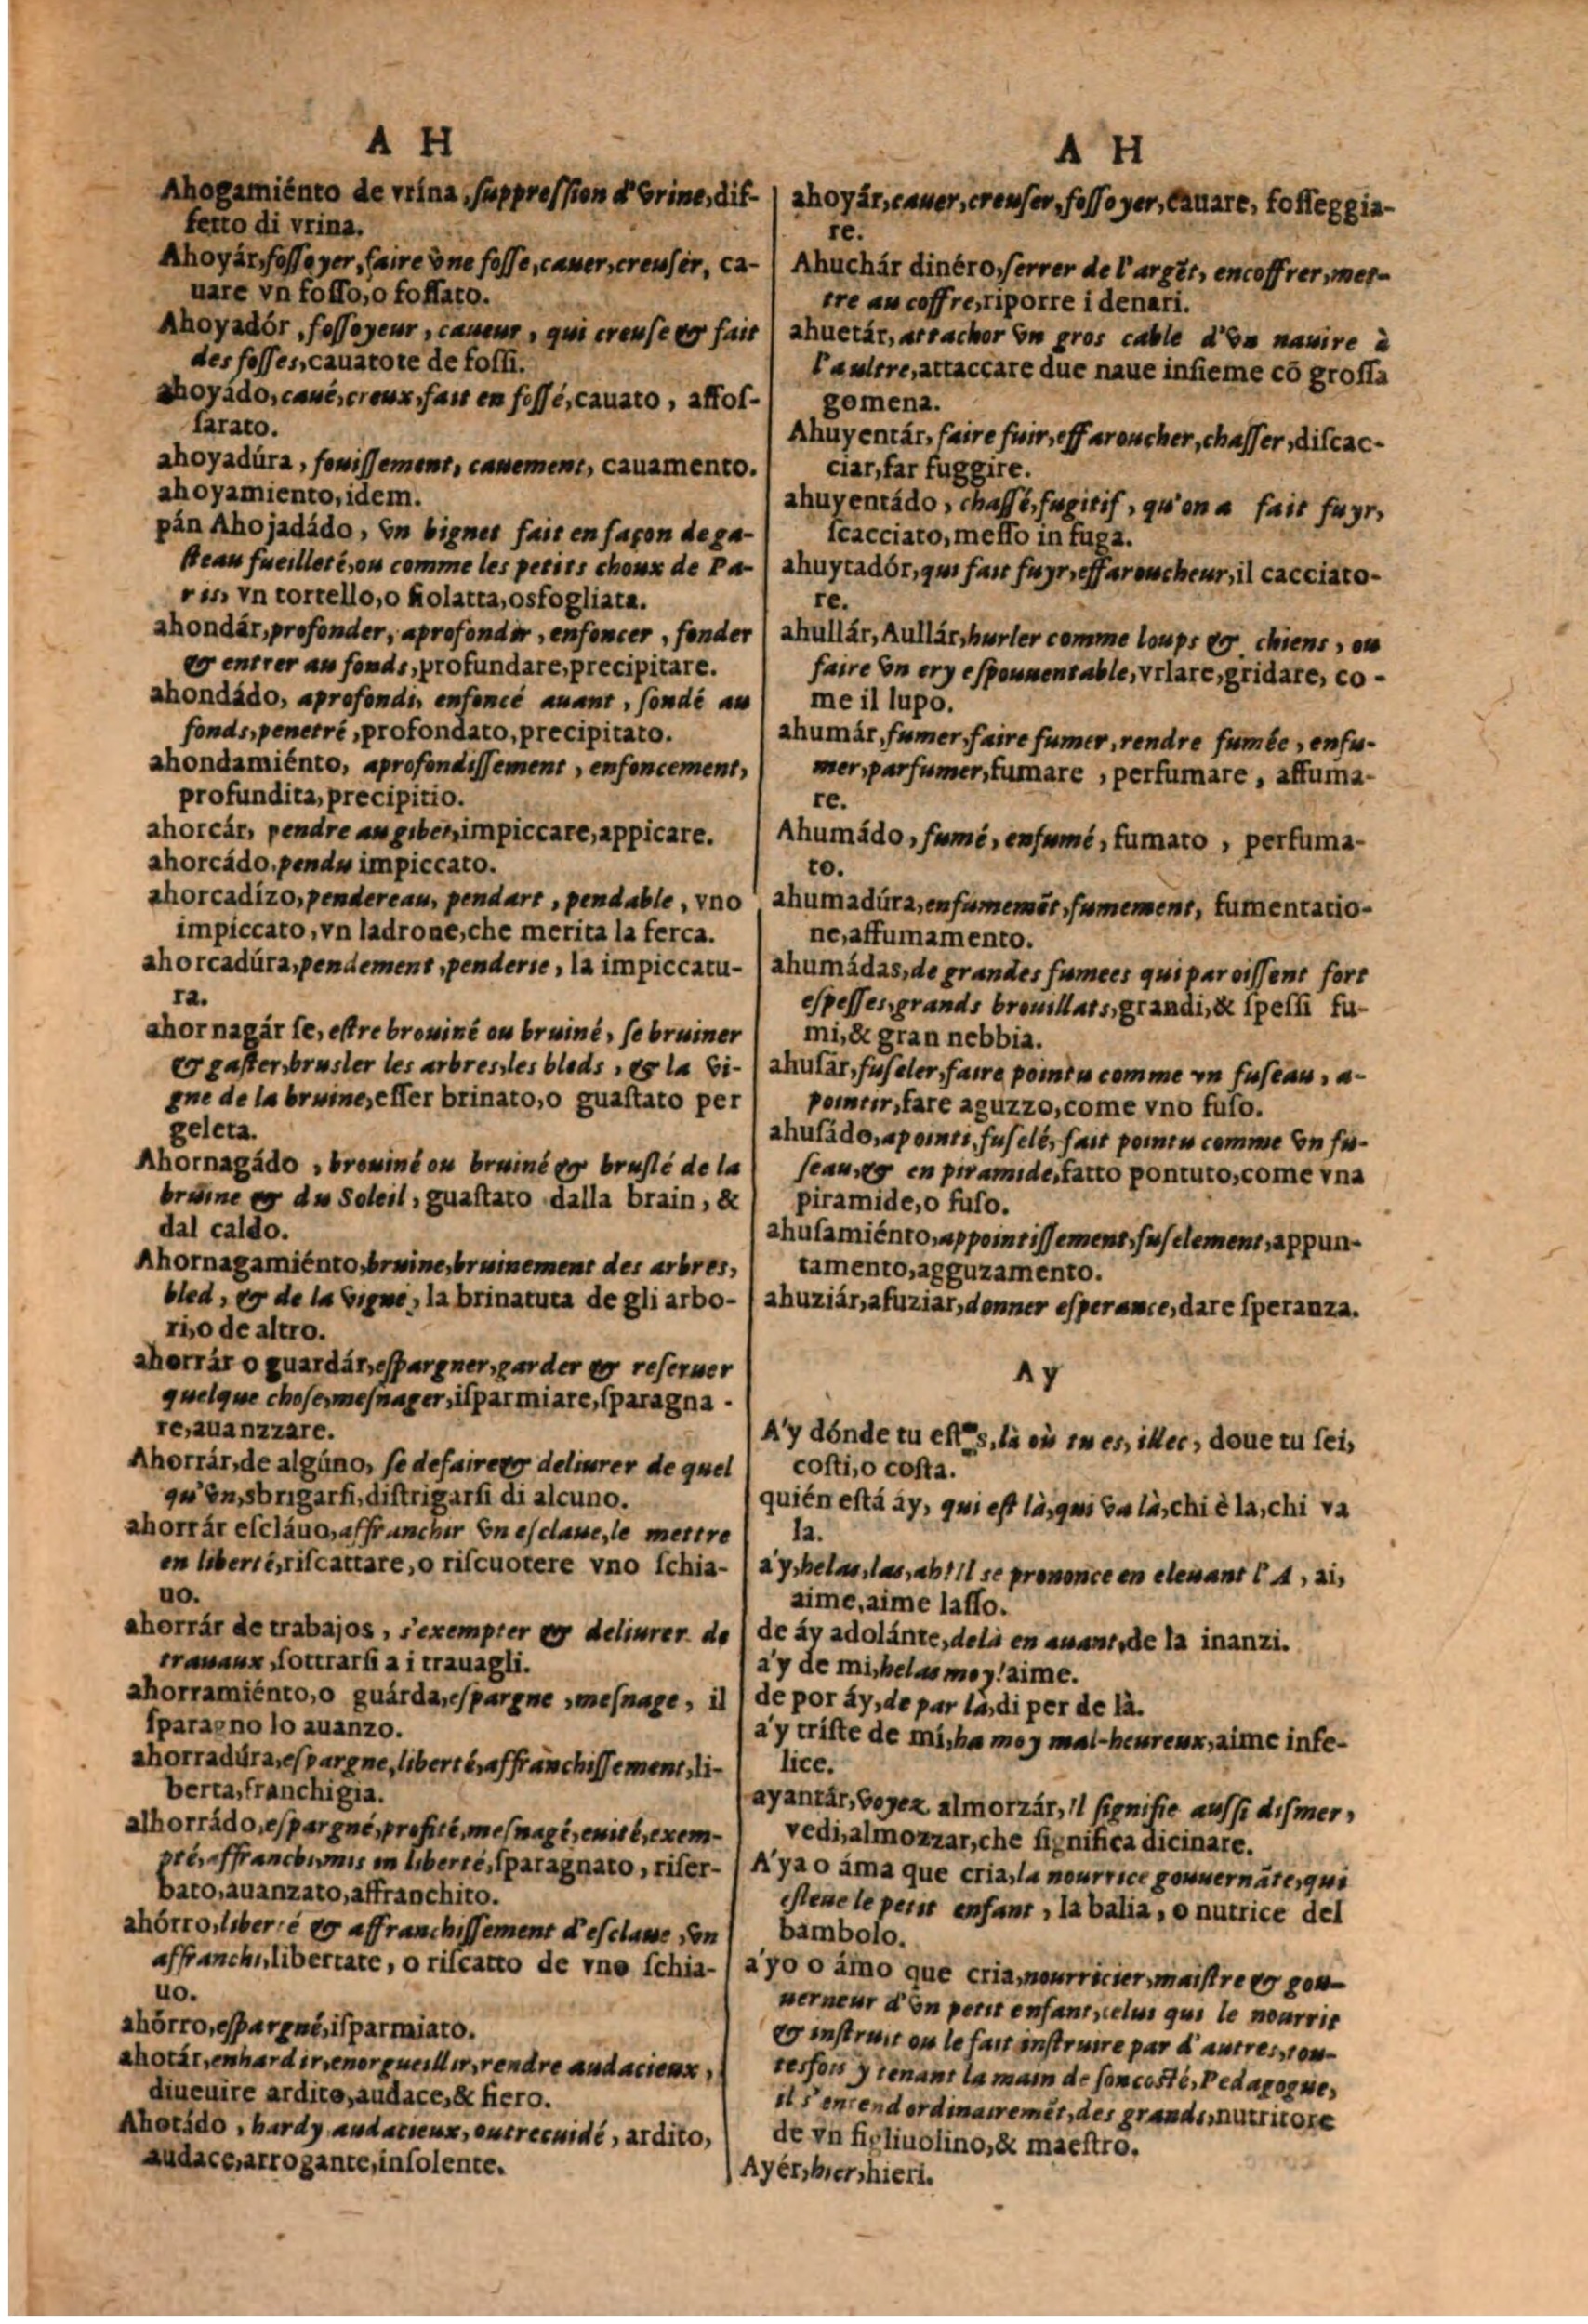 A H
Ahogamiénto de vrína, ſuppreſſion d'vrine, dif-
fetto di vrina.
Ahoyár, foſſoyer, faire vne foſſe, cauer, creuſer, ca-
uare vn foſſo, o foſſato.
Ahoyadór, foſſoyeur, caueur, qui creuſe & fait
des foſſes, cauatote de foſſi.
ahoyádo, caué, creux, fait en foſſé, cauato, affoſ-
ſarato.
ahoyadúra, fouiſſement, cauement, cauamento.
ahoyamiento, idem.
pán Ahojadádo, vn bignet fait en façon de ga-
ſteau fueilleté, ou comme les petits choux de Pa-
ris, vn tortello, o fiolatta, osfogliata.
ahondár, profonder, aprofondir, enfoncer, fonder
& entrer au fonds, profundare, precipitare.
ahondádo, aprofondi, enfoncé auant, ſondé au
fonds, penetré, profondato, precipitato.
ahondamiénto, aprofondiſſement, enfoncement,
profundita, precipitio.
ahorcár, pendre au gibet, impiccare, appicare.
ahorcádo, pendu impiccato.
ahorcadízo, pendereau, pendart, pendable, vno
impiccato, vn ladrone, che merita la ferca.
ahorcadúra, pendement, penderie, la impiccatu-
ra.
ahornagár ſe, eſtre brouiné ou bruiné, ſe bruiner
& gaſter, bruſler les arbres, les bleds, & la vi-
gne de la bruine, eſſer brinato, o guaſtato per
geleta.
Ahornagádo, brouiné ou bruiné & bruſlé de la
bruine & du Soleil, guaſtato dalla brain, &
dal caldo.
Ahornagamiénto, bruine, bruinement des arbres,
bled, & de la vigne, la brinatuta de gli arbo-
ri, o de altro.
ahorrár o guardár, eſpargner, garder & reſeruer
quelque choſe, meſnager, iſparmiare, ſparagna -
re, auanzzare.
Ahorrár, de algúno, ſe defaire & deliurer de quel
qu'vn, sbrigarſi, diſtrigarſi di alcuno.
ahorrár eſcláuo, affranchir vn eſclaue, le mettre
en liberté, riſcattare, o riſcuotere vno ſchia-
uo.
ahorrár de trabajos, s'exempter & deliurer de
trauaux, ſottrarſi a i trauagli.
ahorramiénto, o guárda, eſpargne, meſnage, il
ſparagno lo auanzo.
ahorradúra, eſpargne, liberté, affranchiſſement, li-
berta, franchigia.
alhorrádo, eſpargné, profité, meſnagé, euité, exem-
pté, affranchi, mis in liberté, ſparagnato, riſer-
bato, auanzato, affranchito.
ahórro, liberté & affranchiſſement d'eſclaue, vn
affranchi, libertate, o riſcatto de vno ſchia-
uo.
ahórro, eſpargné, iſparmiato.
ahotár, enhardir, enorgueillir, rendre audacieux,
diueuire ardito, audace, & fiero.
Ahotádo, hardy audacieux, outrecuidé, ardito,
audace, arrogante, inſolente.
A H
ahoyár, cauer, creuſer, foſſoyer, cauare, foſſeggia-
re.
Ahuchár dinéro, ſerrer de l'argẽt, encoffrer, met-
tre au coffre, riporre i denari.
ahuetár, attachor vn gros cable d'vn nauire à
l'aultre, attaccare due naue inſieme cõ groſſa
gomena.
Ahuyentár, faire fuir, effaroucher, chaſſer, diſcac-
ciar, far fuggire.
ahuyentádo, chaſſé, fugitif, qu'on a fait fuyr,
ſcacciato, meſſo in fuga.
ahuytadór, qui fait fuyr, effaroucheur, il cacciato-
re.
ahullár, Aullár, hurler comme loups & chiens, ou
faire vn ery eſpouuentable, vrlare, gridare, co -
me il lupo.
ahumár, fumer, faire fumer, rendre fumée, enfu-
mer, parfumer, fumare, perfumare, affuma-
re.
Ahumádo, fumé, enfumé, fumato, perfuma-
to.
ahumadúra, enfumemẽt, fumement, fumentatio-
ne, affumamento.
ahumádas, de grandes fumees qui paroiſſent fort
eſpeſſes, grands brouillats, grandi, & ſpeſſi fu-
mi, & gran nebbia.
ahuſár, fuſeler, faire pointu comme vn fuſeau, a-
pointir, fare aguzzo, come vno fuſo.
ahuſádo, apointi, fuſelé, fait pointu comme vn fu-
ſeau, & en piramide, fatto pontuto, come vna
piramide, o fuſo.
ahuſamiénto, appointiſſement, fuſelement, appun-
tamento, agguzamento.
ahuziár, afuziar, donner eſperance, dare ſperanza.
A y
A'y dónde tu là où tu es, illec, doue tu ſei,
coſti, o coſta.
quién eſtá áy, qui eſt là, qui va là, chi è la, chi va
la.
a'y, helas, las, ah! il se prononce en eleuant l'A, ai,
aime, aime laſſo.
de áy adolánte, delà en auant, de la inanzi.
a'y de mi, helas moy! aime.
de por áy, de par là, di per de là.
a'y tríſte de mí, ha moy mal-heureux, aime infe-
lice.
ayantár, voyez almorzár, il ſignifie auſſi diſmer,
vedi, almozzar, che ſignifica dicinare.
A'ya o áma que cria, la nourrice gouuernãte, qui
eſleue le petit enfant, la balia, o nutrice del
bambolo.
a'yo o ámo que cria, nourricier, maiſtre & gou-
uerneur d'vn petit enfant, celui qui le nourrit
& inſtruit ou le fait inſtruire par d'autres, tou-
tesfois y tenant la main de ſon coſté, Pedagogue,
il s'entend ordinairemẽt, des grands, nutritore
de vn figliuolino, & maeſtro.
Ayér, hier, hieri.